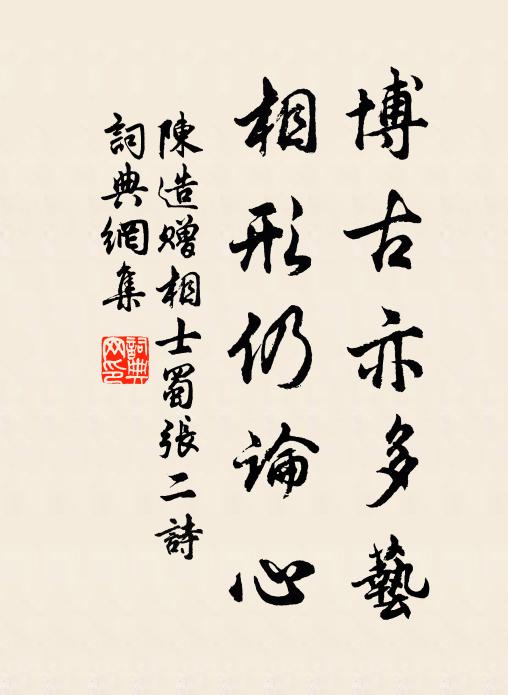 博古亦多藝
相形仍論心
陳造贈相士蜀張二詩
詞典網集
詞典網印